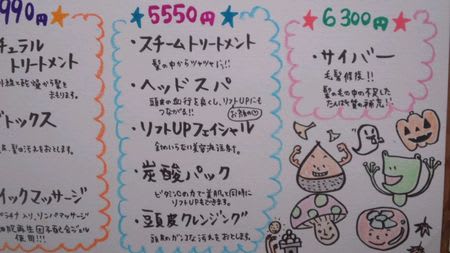 990円
チュラル
トリートメント
乾燥から髪を
まもります。
デトックス
髪の汚れをおとします。
イックマッサージ
使用!!!
5550円
・スチームトリートメント
髪の中からツヤツヤに!!
・ヘッドスパ
頭皮の血行を良くし、リフトUPにも
つながる!!
お顔の
・リフトUPフェイシャル
針のいらない美容液注射。
・炭酸パック
ビタミンCの力で美肌と同時に
リフトUPもできます。
・頭皮クレンジング
頭皮のガンコな汚れをおとします。
6300円
・サイバー
毛髪修復!!
髪の毛の中の不足した
たんぱく質の補充!!